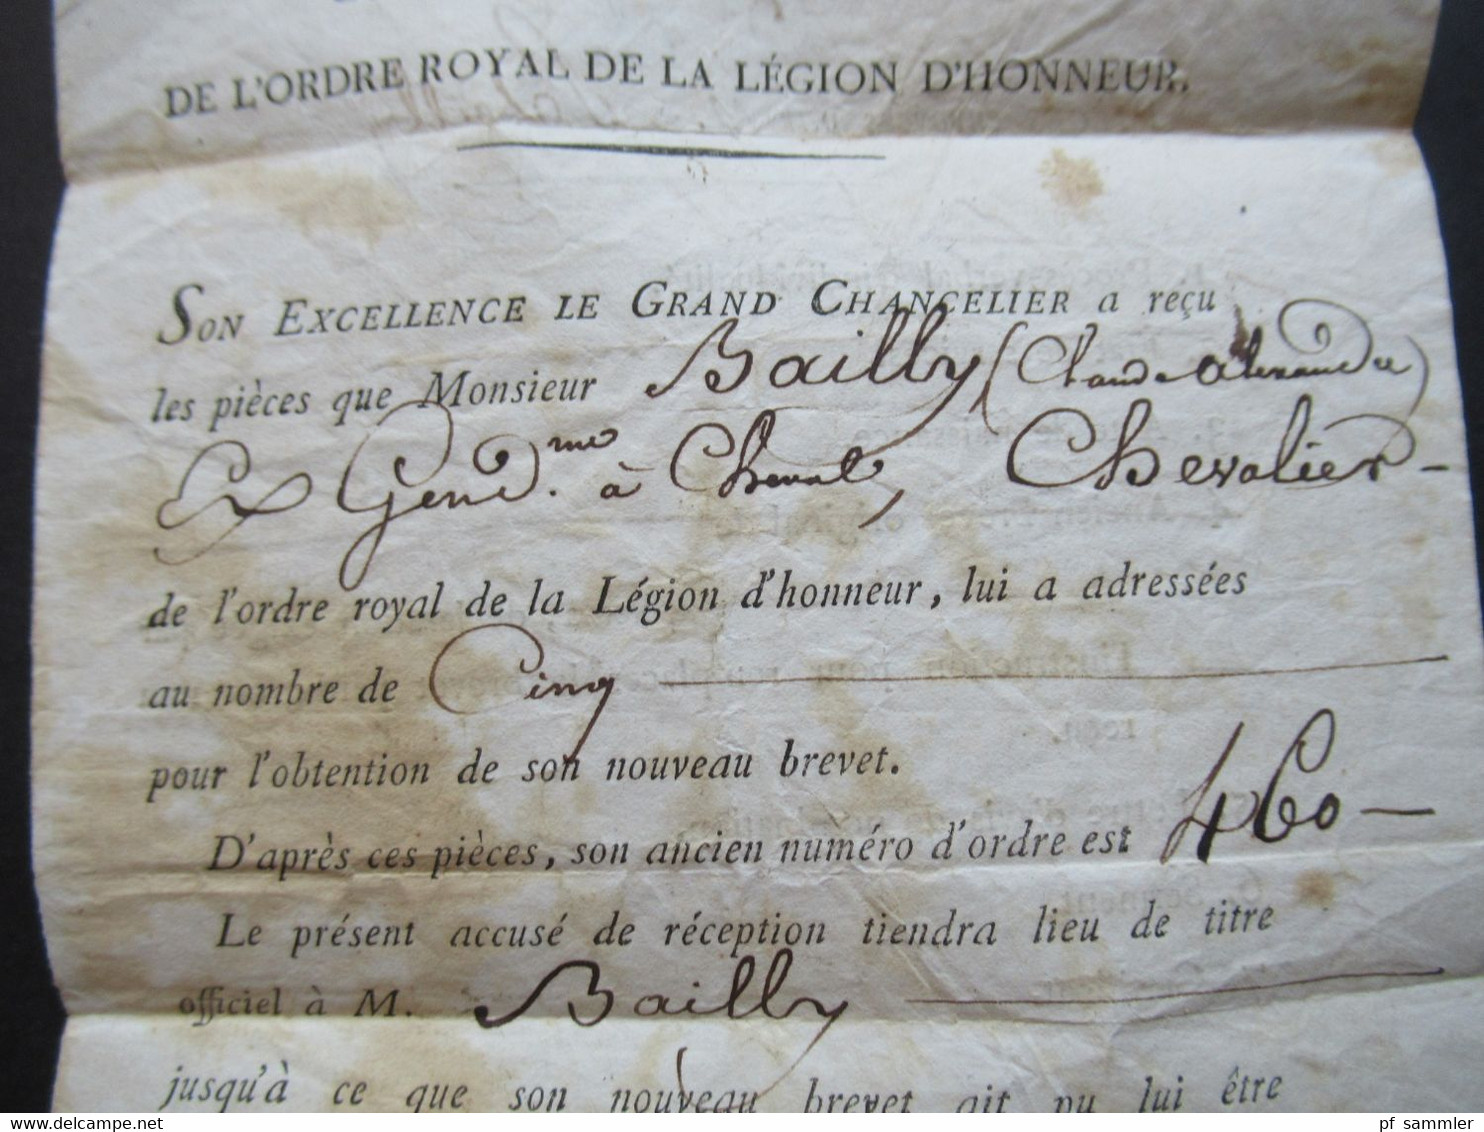 DE L'ORDRE ROYAL DE LA LÉGION D'HONNEUR.
SON EXCELLENCE LE GRAND CHANCELIER a reçu
les pièces que Monsieur Bailly (Claude Alexandre)
Ex Gend.me à Cheval, Chevalier -
de l'ordre royal de la Légion d'honneur, lui a adressées
au nombre de Cinq
pour l'obtention de son nouveau brevet.
D'après ces pièces, son ancien numéro d'ordre est 460 —
Le présent accusé de réception tiendra lieu de titre
officiel à M. Bailly
jusqu'à ce que son nouveau brevet ait pu lui être
www.delcampe.net
pf sammler